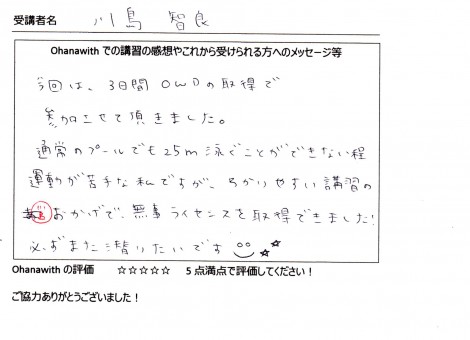 受講者名 川島 智良
Ohanawith での講習の感想やこれから受けられる方へのメッセージ等
今回は、3日間 OWDの取得で
参加させて頂きました。
通常のプールでも25m泳ぐことができない程
運動が苦手な私ですが、わかりやすい講習の
おかげで、無事ライセンスを取得できました!
必ずまた潜りたいです
Ohanawith の評価 ☆☆☆☆☆ 5 点満点で評価してください!
ご協力ありがとうございました!